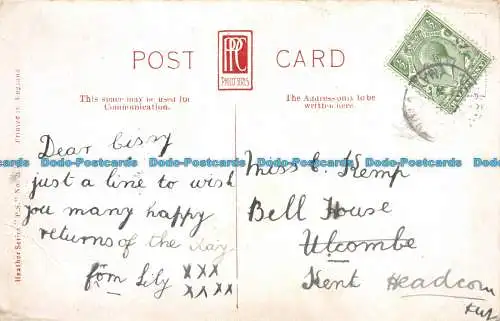 POST CARD
PPC
PRINTERS
This space may be used for
Communication.
The Address only to be
written here.
Dear Cissy
just a line to wish
you many happy
returns of the day
from Lily xxx
xxxx
Miss C. Kemp
Bell House
Ulcombe
Kent Headcorn
Printed in England
Heather Series "P.S." No.
Dodo-Postcards Dodo-Postcards Dodo-Postcards Dodo-Postcards